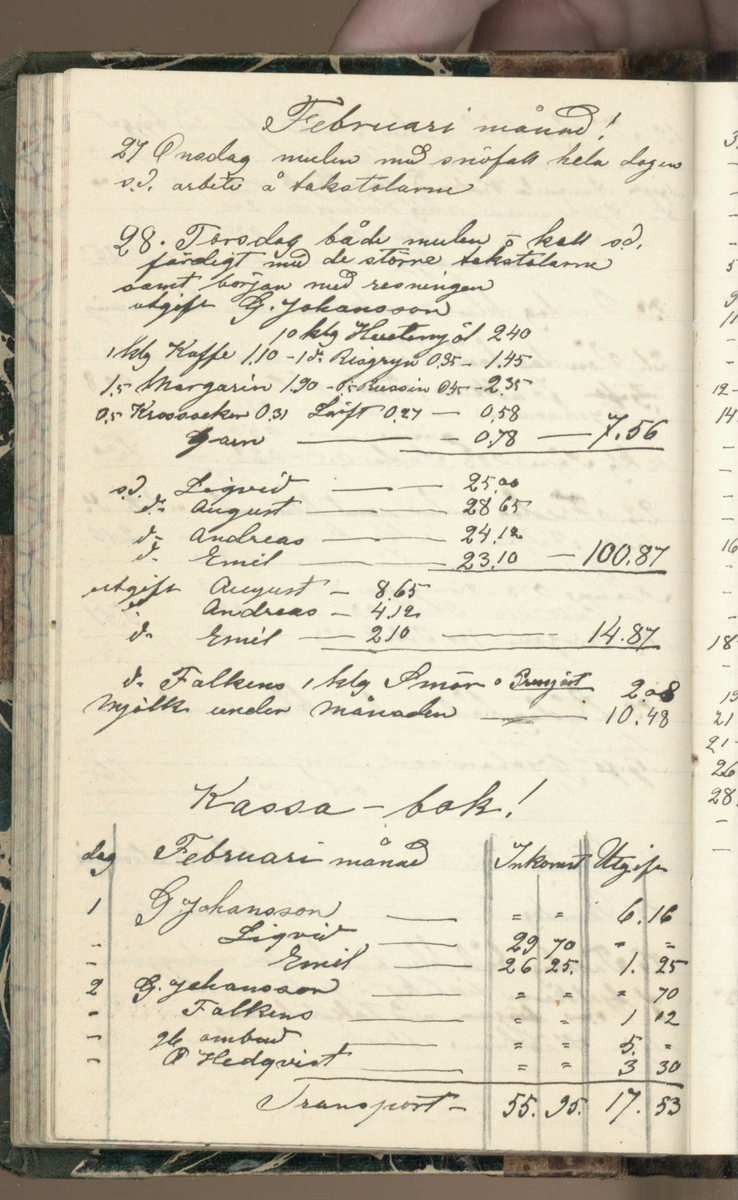 Februari månad!
27 Onsdag mulen med snöfall hela dagen
s.d. arbete å takstolarne
28. Torsdag både mulen o kall sd.
färdigt med de större takstolarne
samt början med resningen
utgift G. Johansson
10 klg Hvetemjöl 240
1 klg Kaffe 1.10 - 1 d:o Risgryn 0.35 - 1.45
1.5 Margarin 1.90 - 0.5 Russin 0.45 - 2.35
0.5 Krossocker 0.31 Läft 0.27 — 0.58
Garn — 0.78 — 7.56
s.d. Sigvid — 25.00
d:o August — 28.65
d:o Andreas — 24.12
d:o Emil — 23.10 — 100.87
utgift August — 8.65
d:o Andreas — 4.12
d:o Emil — 2.10 — 14.87
d:o Falkens 1 klg Smör o 2.08
Mjölk under Månaden — 10.48
Kassa-bok!
dag Februari månad Inkomst Utgift
1 G Johansson — " " 6.16
" Sigvid — 29 70 " "
" Emil — 26 25. 1. 25
2 G. Johansson — " " " 70
" Falkens — " " 1 12
" ombud — " " 5. "
" P Hedqvist — " " 3 30
Transport - 55. 95. 17. 53
3.
5
9
11
12-
14.
16
18-
19
21
21-
26
28.